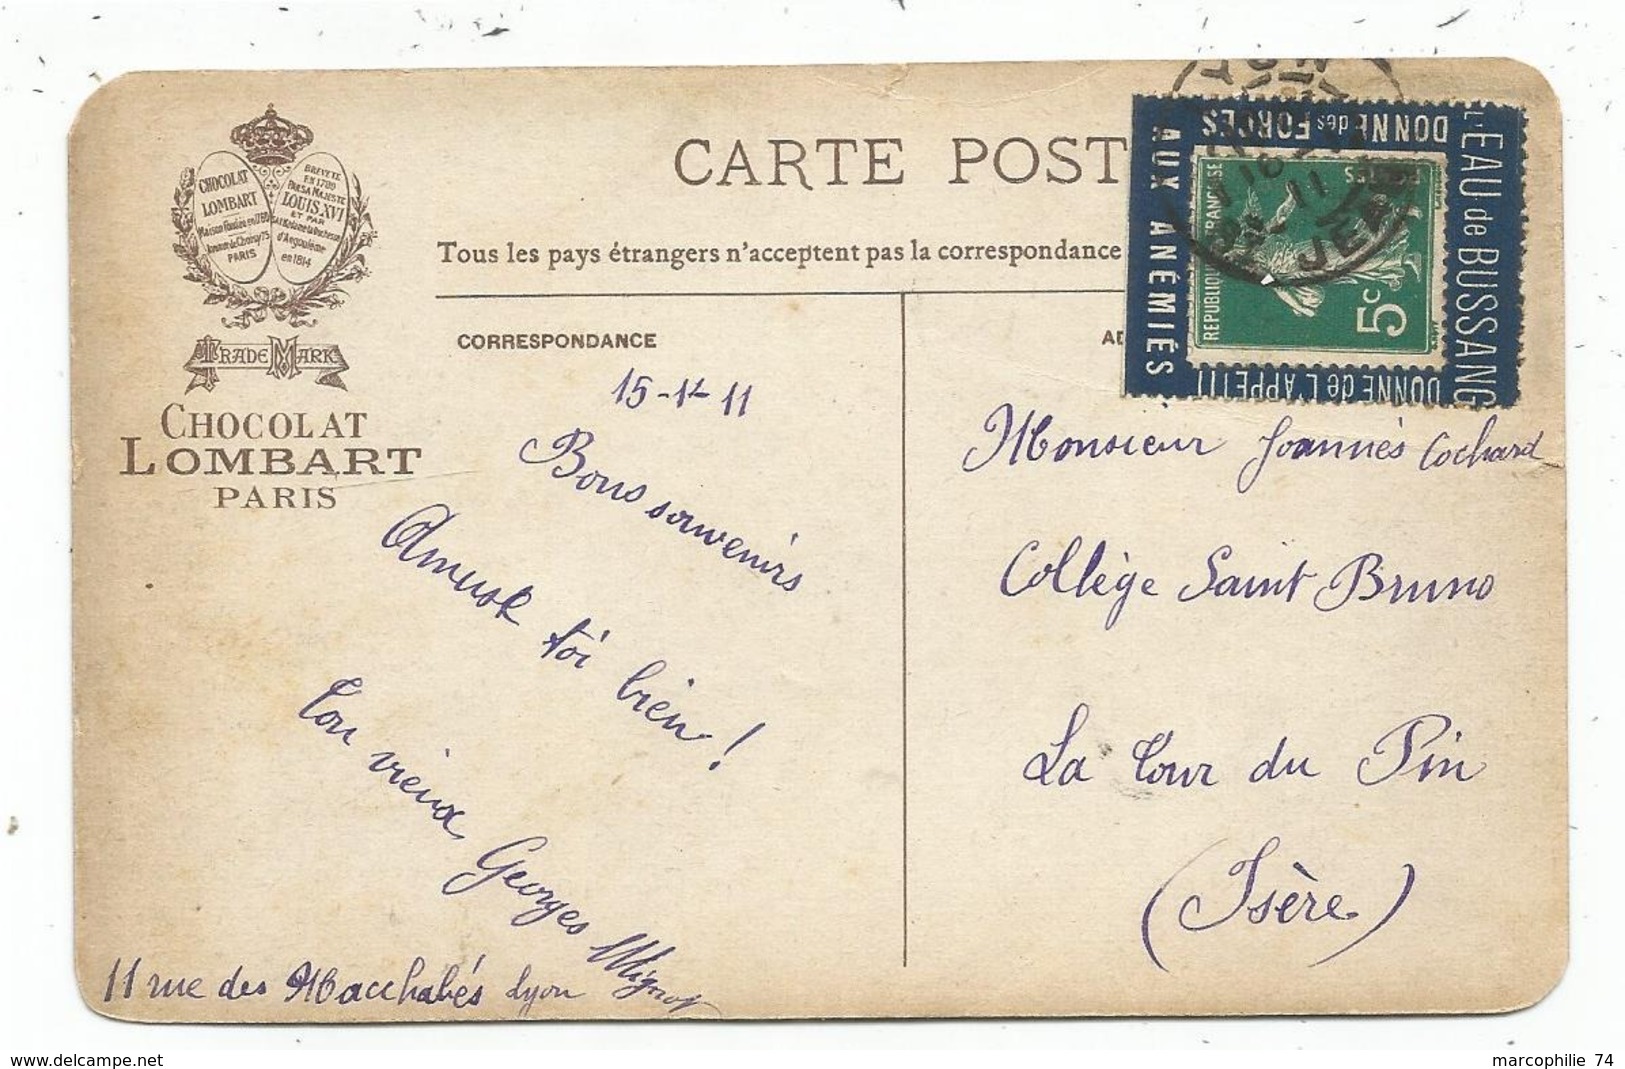 CHOCOLAT
LOMBART
Maison Fondée en 1760
Avenue de Choisy 75
PARIS
BREVETÉ
EN 1789
PAR SA MAJESTÉ
LOUIS XVI
ET PAR
d'Angoulême
en 1814
TRADE MARK
CHOCOLAT
LOMBART
PARIS
CARTE POST
Tous les pays étrangers n'acceptent pas la correspondance
CORRESPONDANCE
L'EAU de BUSSANG
DONNE des FORCES
AUX ANÉMIÉS
DONNE de L'APPETIT
REPUBLIQUE FRANÇAISE
POSTES
5c
15-1-11
Bons souvenirs
Amuse toi bien!
Ton vieux Georges Mignot
11 rue des Macchabés Lyon
Monsieur Joannès Cochard
Collège Saint Bruno
La Tour du Pin
(Isère)
marcophilie 74